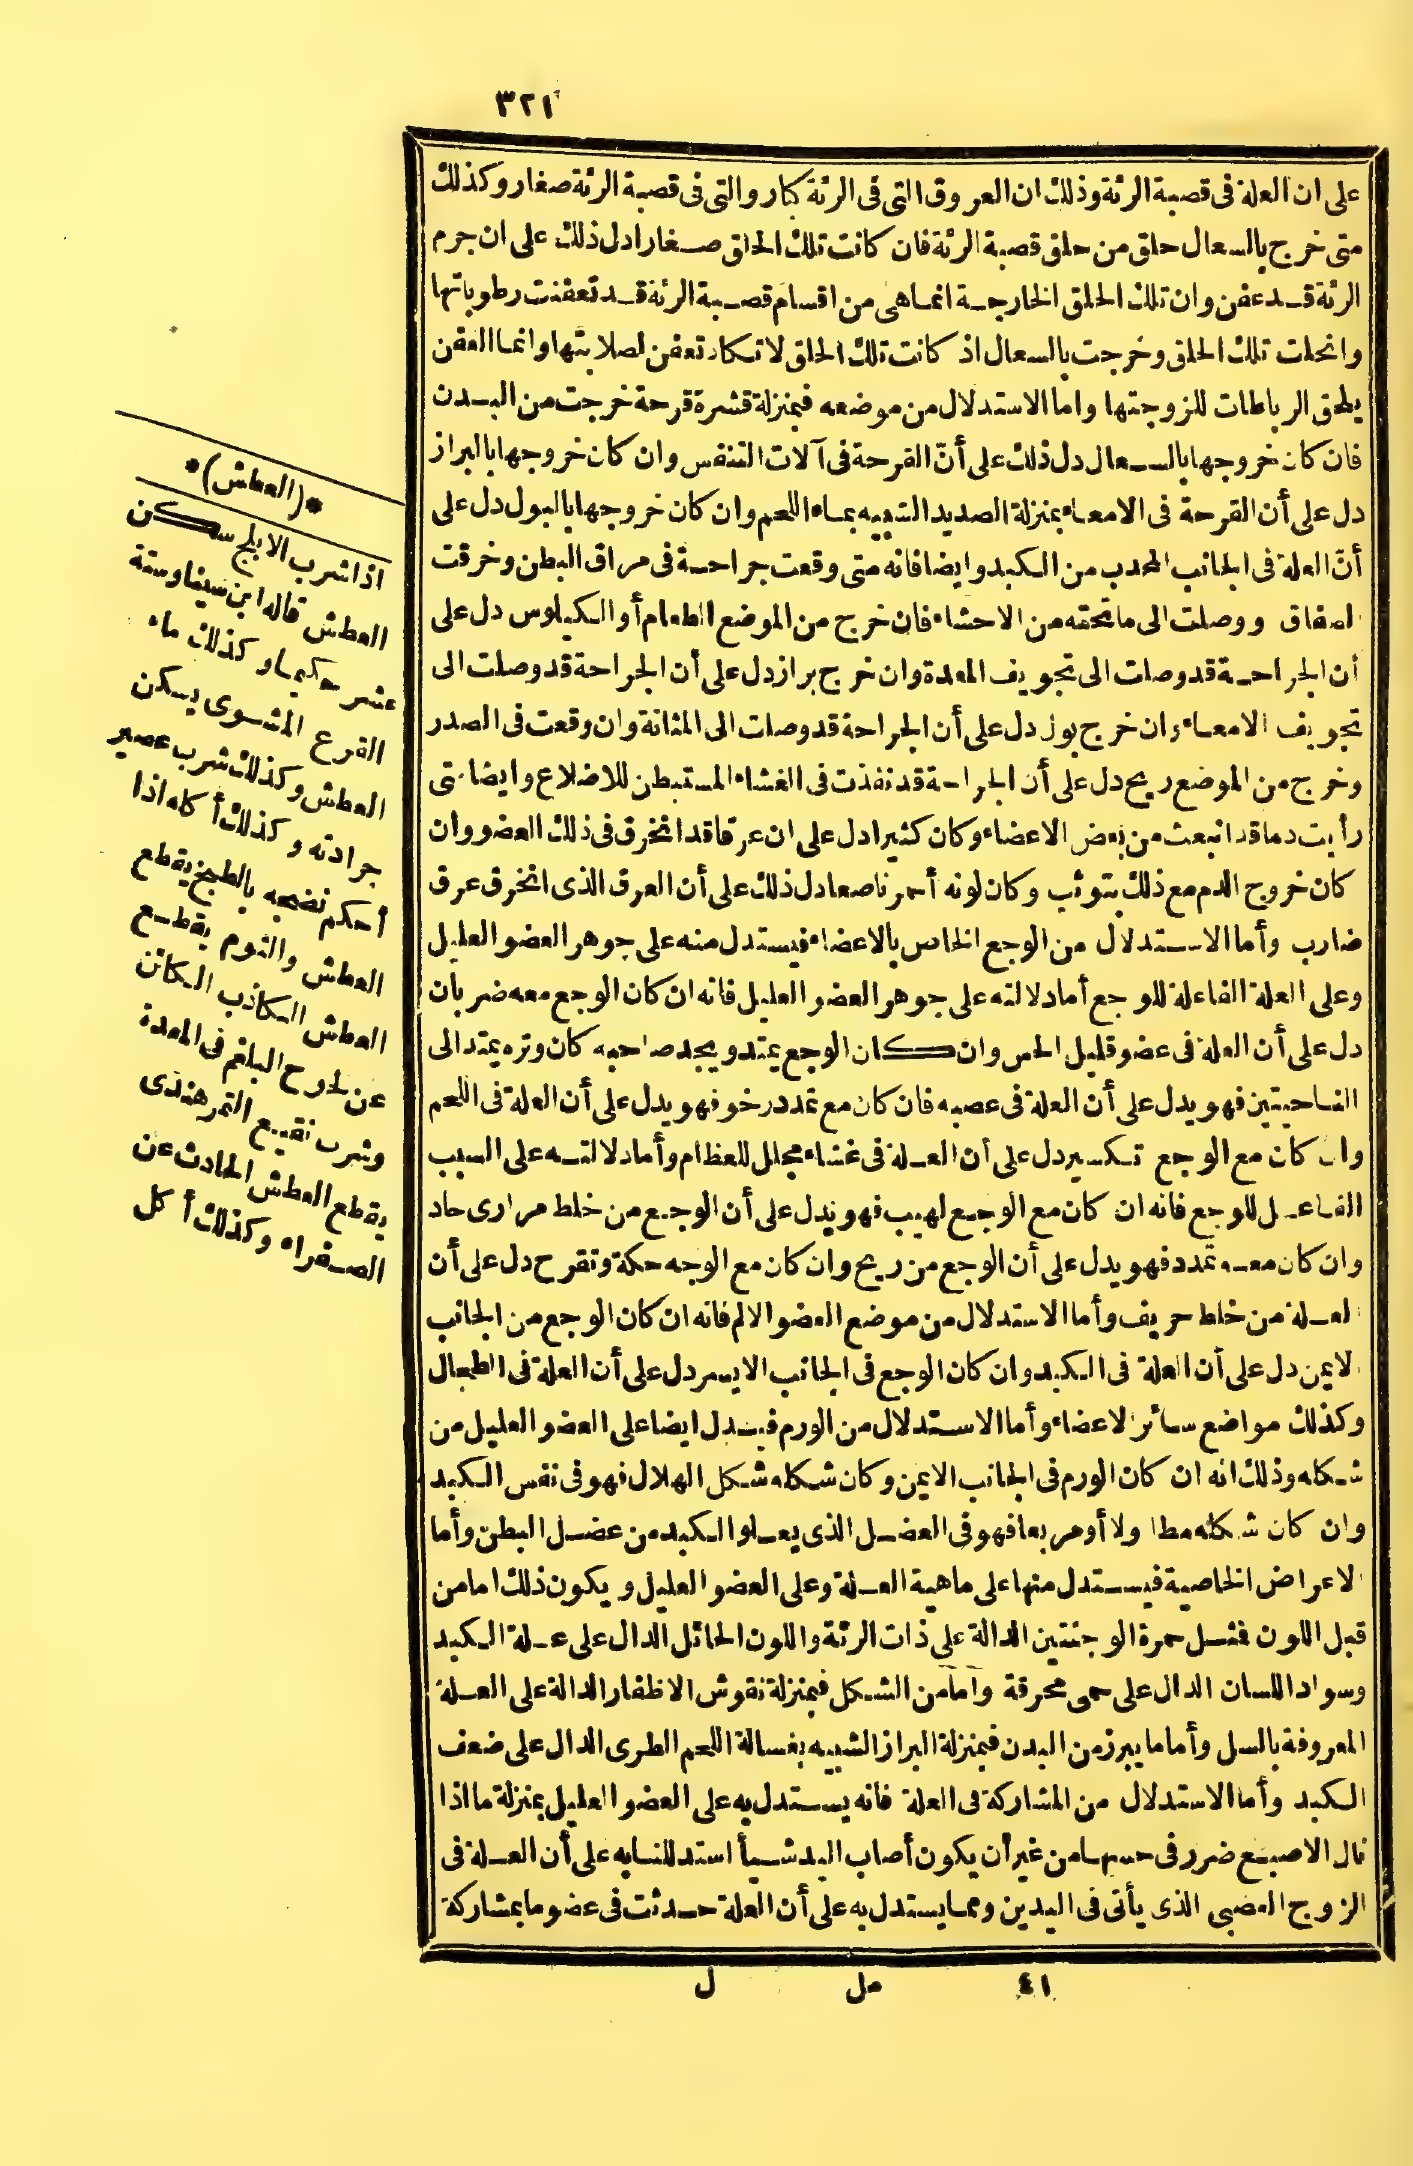 ٣٢١
على ان العلة فى قصبة الرئة وذلك ان العروق التى فى الرئة كبار والتى فى قصبة الرئة صغار وكذلك
متى خرج بالسعال حلق من حلق قصبة الرئة فان كانت تلك الحلق صغارا دل ذلك على ان جرم
الرئة قد عفن وان تلك الحلق الخارجة انما هى من اقسام قصبة الرئة قد تعفنت رطوباتها
وانحلت تلك الحلق وخرجت بالسعال اذ كانت تلك الحلق لا تكاد تعفن لصلابتها وانما العفن
يلحق الرباطات للزوجتها واما الاستدلال من موضعه فبمنزلة قشرة قرحة خرجت من البدن
فان كان خروجها بالسعال دل ذلك على أنّ القرحة فى آلات التنفس وان كان خروجها بالبراز
دل على أن القرحة فى الامعاء بمنزلة الصديد الشبيه بماء اللحم وان كان خروجها بالبول دل على
أنّ العلة فى الجانب المحدب من الكبد وايضا فانه متى وقعت جراحة فى مراق البطن وخرقت
الصفاق ووصلت الى ما تحته من الاحشاء فان خرج من الموضع الطعام أو الكيلوس دل على
أن الجراحة قد وصلت الى تجويف المعدة وان خرج براز دل على أن الجراحة قد وصلت الى
تجويف الامعاء وان خرج بول دل على أن الجراحة قد وصلت الى المثانة وان وقعت فى الصدر
وخرج من الموضع ريح دل على أن الجراحة قد نفذت فى الغشاء المستبطن للاضلاع وايضا متى
رأيت دما قد انبعث من بعض الاعضاء وكان كثيرا دل على ان عرقا قد انخرق فى ذلك العضو وان
كان خروج الدم مع ذلك بتوثب وكان لونه أحمر ناصعا دل ذلك على أن العرق الذى انخرق عرق
ضارب وأما الاستدلال من الوجع الخاص بالاعضاء فيستدل منه على جوهر العضو العليل
وعلى العلة الفاعلة للوجع أما دلالته على جوهر العضو العليل فانه ان كان الوجع معه ضربان
دل على أن العلة فى عضو قليل الحس وان كان الوجع يمتد ويجد صاحبه كان وتره يمتد الى
الناحيتين فهو يدل على أن العلة فى عصبه فان كان مع تمدد رخو فهو يدل على أن العلة فى اللحم
وان كان مع الوجع تكسير دل على أن العلة فى غشاء مجلل للعظام وأما دلالته على السبب
الفاعل للوجع فانه ان كان مع الوجع لهيب فهو يدل على أن الوجع من خلط مرارى حاد
وان كان معه تمدد فهو يدل على أن الوجع من ريح وان كان مع الوجه حكة وتقرح دل على أن
العلة من خلط حريف وأما الاستدلال من موضع العضو الالم فانه ان كان الوجع من الجانب
الايمن دل على أن العلة فى الكبد وان كان الوجع فى الجانب الايسر دل على أن العلة فى الطحال
وكذلك مواضع سائر الاعضاء وأما الاستدلال من الورم فيدل ايضا على العضو العليل من
شكله وذلك انه ان كان الورم فى الجانب الايمن وكان شكله شكل الهلال فهو فى نفس الكبد
وان كان شكله مطاولا أو مربعا فهو فى العضل الذى يعلو الكبد من عضل البطن وأما
الاعراض الخاصية فيستدل منها على ماهية العلة وعلى العضو العليل ويكون ذلك اما من
قبل اللون فمثل حمرة الوجنتين الدالة على ذات الرئة واللون الحائل الدال على علة الكبد
وسواد اللسان الدال على حمى محرقة وأما من الشكل فبمنزلة نقوش الاظفار الدالة على العلة
المعروفة بالسل وأما ما يبرز من البدن فبمنزلة البراز الشبيه بغسالة اللحم الطرى الدال على ضعف
الكبد وأما الاستدلال من المشاركة فى العلة فانه يستدل به على العضو العليل بمنزلة ما اذا
نال الاصبع ضرر فى حسها من غير أن يكون أصاب اليد شيأ استدللنا به على أن العلة فى
الزوج العصبى الذى يأتى فى اليدين ومما يستدل به على أن العلة حدثت فى عضو ما بمشاركة
٤١ مل ل
*(العطش)*
اذا شرب الايلج سكن
العطش قاله ابن سينا وستة
عشر حكيما وكذلك ماء
القرع المشوى يسكن
العطش وكذلك شرب عصير
جرادته وكذلك أكله اذا
أحكم نضجه بالطبخ يقطع
العطش والثوم يقطع
العطش الكاذب الكائن
عن لحوج البلغم فى المعدة
وشرب نقيع التمر هندى
يقطع العطش الحادث عن
الصفراء وكذلك أكل